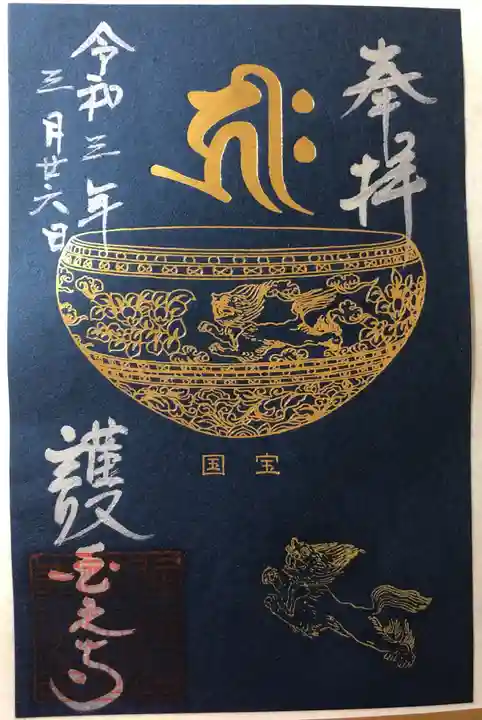 奉拝
国宝
令和三年
三月廿六日
護国之寺